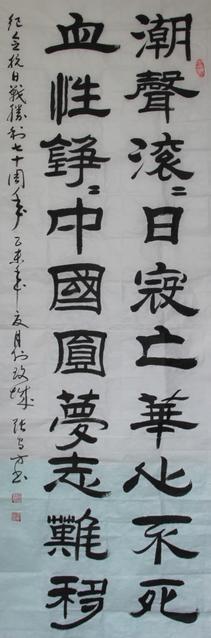 潮聲滾〻日寇亡華心不死
血性錚〻中國圓夢志難移
紀念抗日戰勝利七十周年 乙未年夏月於 張 書